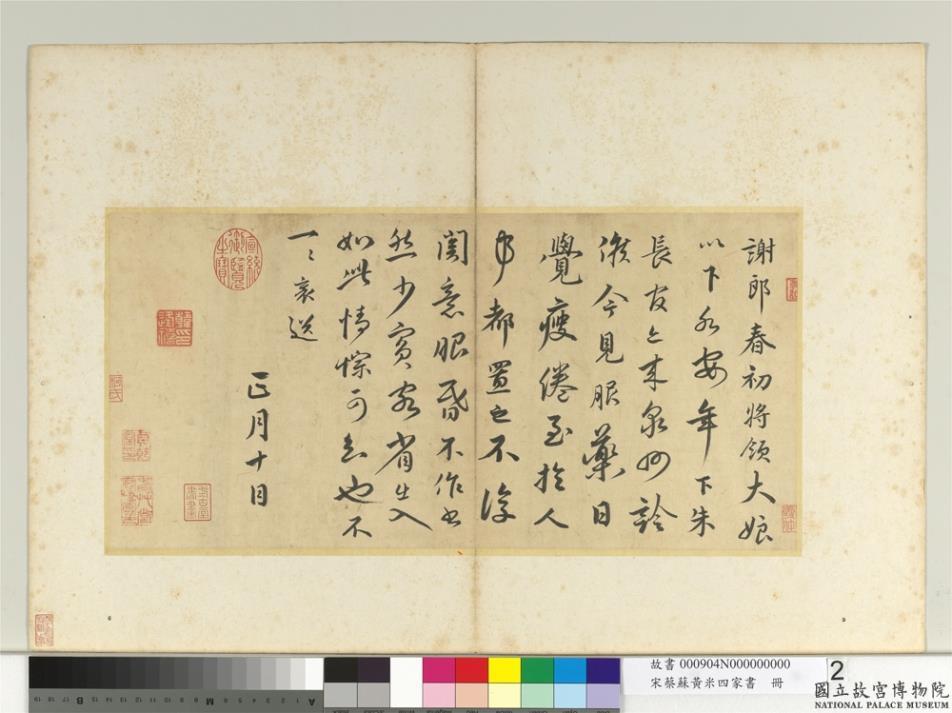 謝郎春初將領大娘
以下各安年下朱
長官亦來泉州診
候今見服藥日
覺瘦倦至於人
事都置之不復
關意眼昏不作書
然少賓客省出入
如此情悰可知也不
一一襄送
正月十日
宣統御覽之寶
故書 000904N000000000
宋蔡蘇黃米四家書 冊
2
國立故宮博物院
NATIONAL PALACE MUSEUM
A
M
B